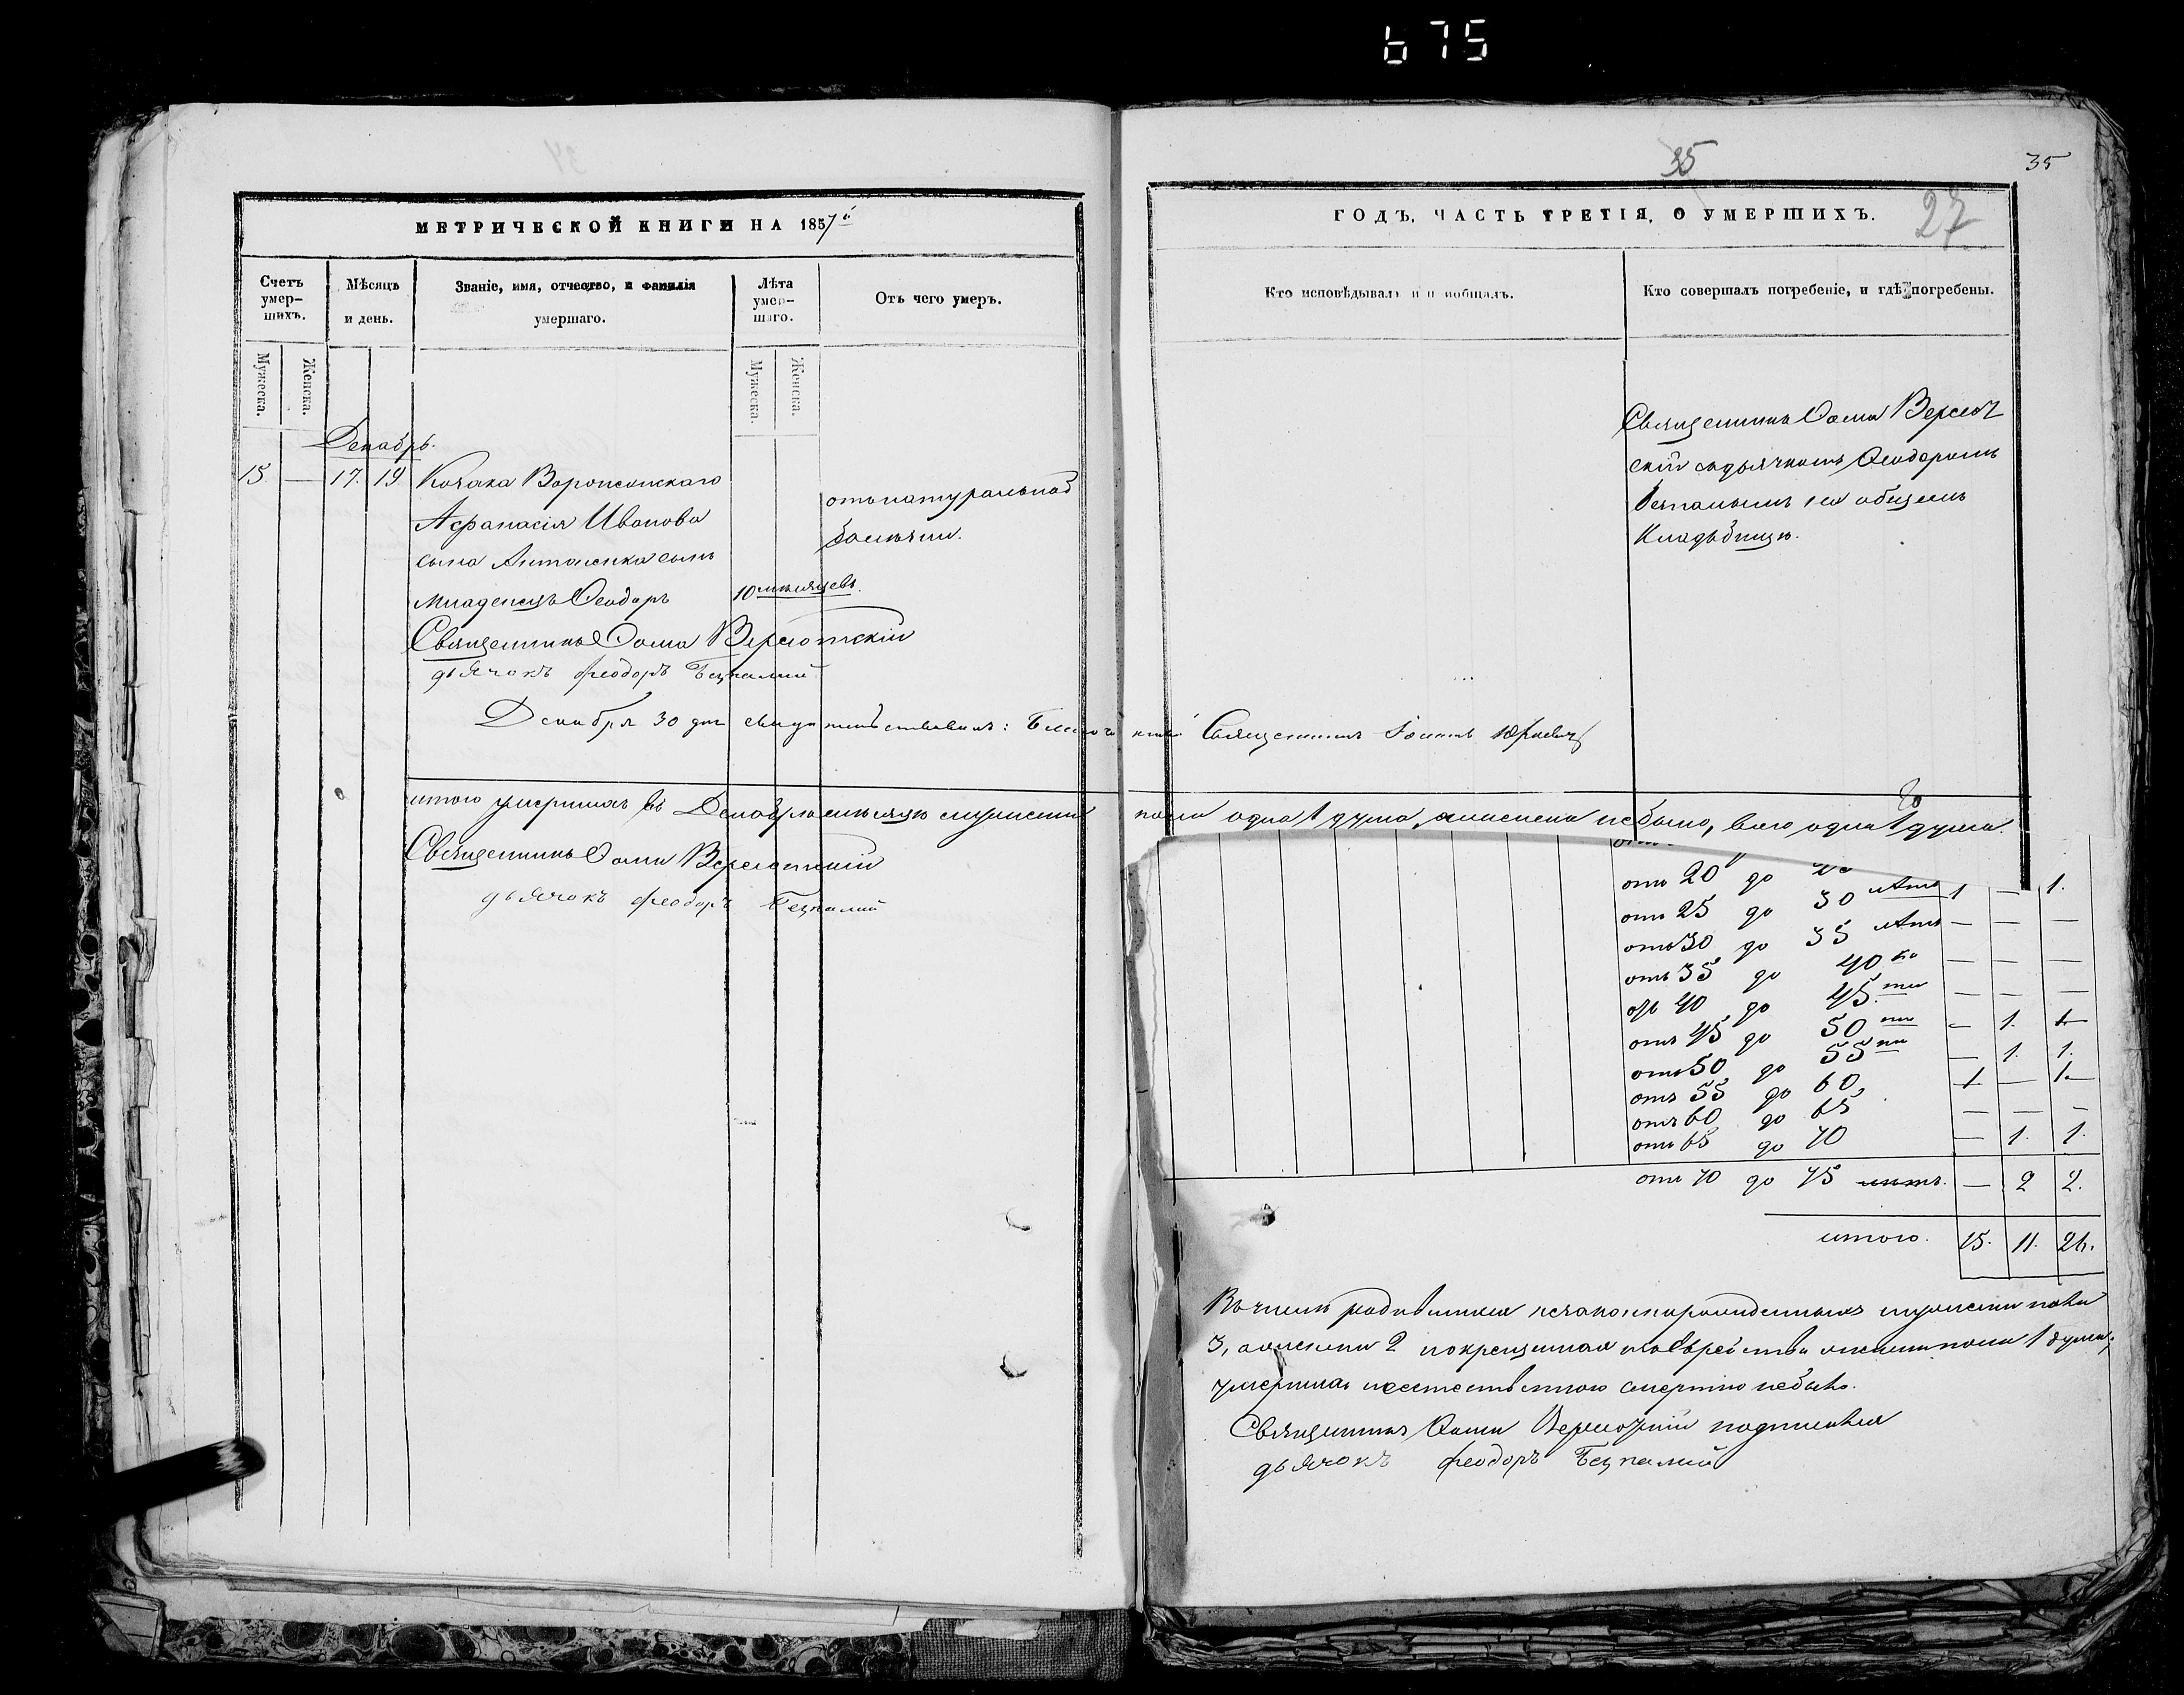 675
35
35
27
МЕТРИЧЕСКОЙ КНИГИ НА 1857й
Счетъ умер-шихъ.
Мѣсяцъ и день.
Званіе, имя, отчество, и фамилія умершаго.
Лѣта умер-шаго.
Отъ чего умеръ.
Мужеска.
Женска.
Мужеска.
Женска.
Декабрь.
15. — 17. 19 Козака
Афанасія Иванова
сына сынъ
младенецъ Ѳеодоръ
10 мѣсяцевъ.
отъ натуральной
болѣзни.
Священникъ Ѳома
дьячокъ Феодоръ
Декабря 30 дня свидѣтельствовалъ: Священникъ Іоаннъ
итого умершихъ въ Декабрѣ мѣсяцѣ мужеска пола одна 1 душа, а женска небыло, всего одна 1 душа.
Священникъ Ѳома
дьячокъ Феодоръ
ГОДЪ, ЧАСТЬ ТРЕТІЯ, О УМЕРШИХЪ.
Кто исповѣдывалъ и пріобщалъ.
Кто совершалъ погребеніе, и гдѣ погребены.
Священникъ Ѳома
скій съ дьячкомъ Ѳеодоромъ
на общемъ
Кладбищѣ.
отъ 20 до
отъ 25 до 30 лѣтъ 1 — 1.
отъ 30 до 35 лѣтъ — — —
отъ 35 до 40 — — —
отъ 40 до 45 — — —
отъ 45 до 50 — 1. 1.
отъ 50 до 55 — 1. 1.
отъ 55 до 60 1 — 1.
отъ 60 до 65 — — —
отъ 65 до 70 — 1. 1.
отъ 70 до 75 лѣтъ. — 2 2.
итого. 15. 11. 26.
Въ числѣ родившихся незаконнорожденныхъ мужеска пола
3, а женска 2 1 душа;
умершихъ неестественною смертію небыло.
Священникъ Ѳома подписался
дьячокъ Феодоръ